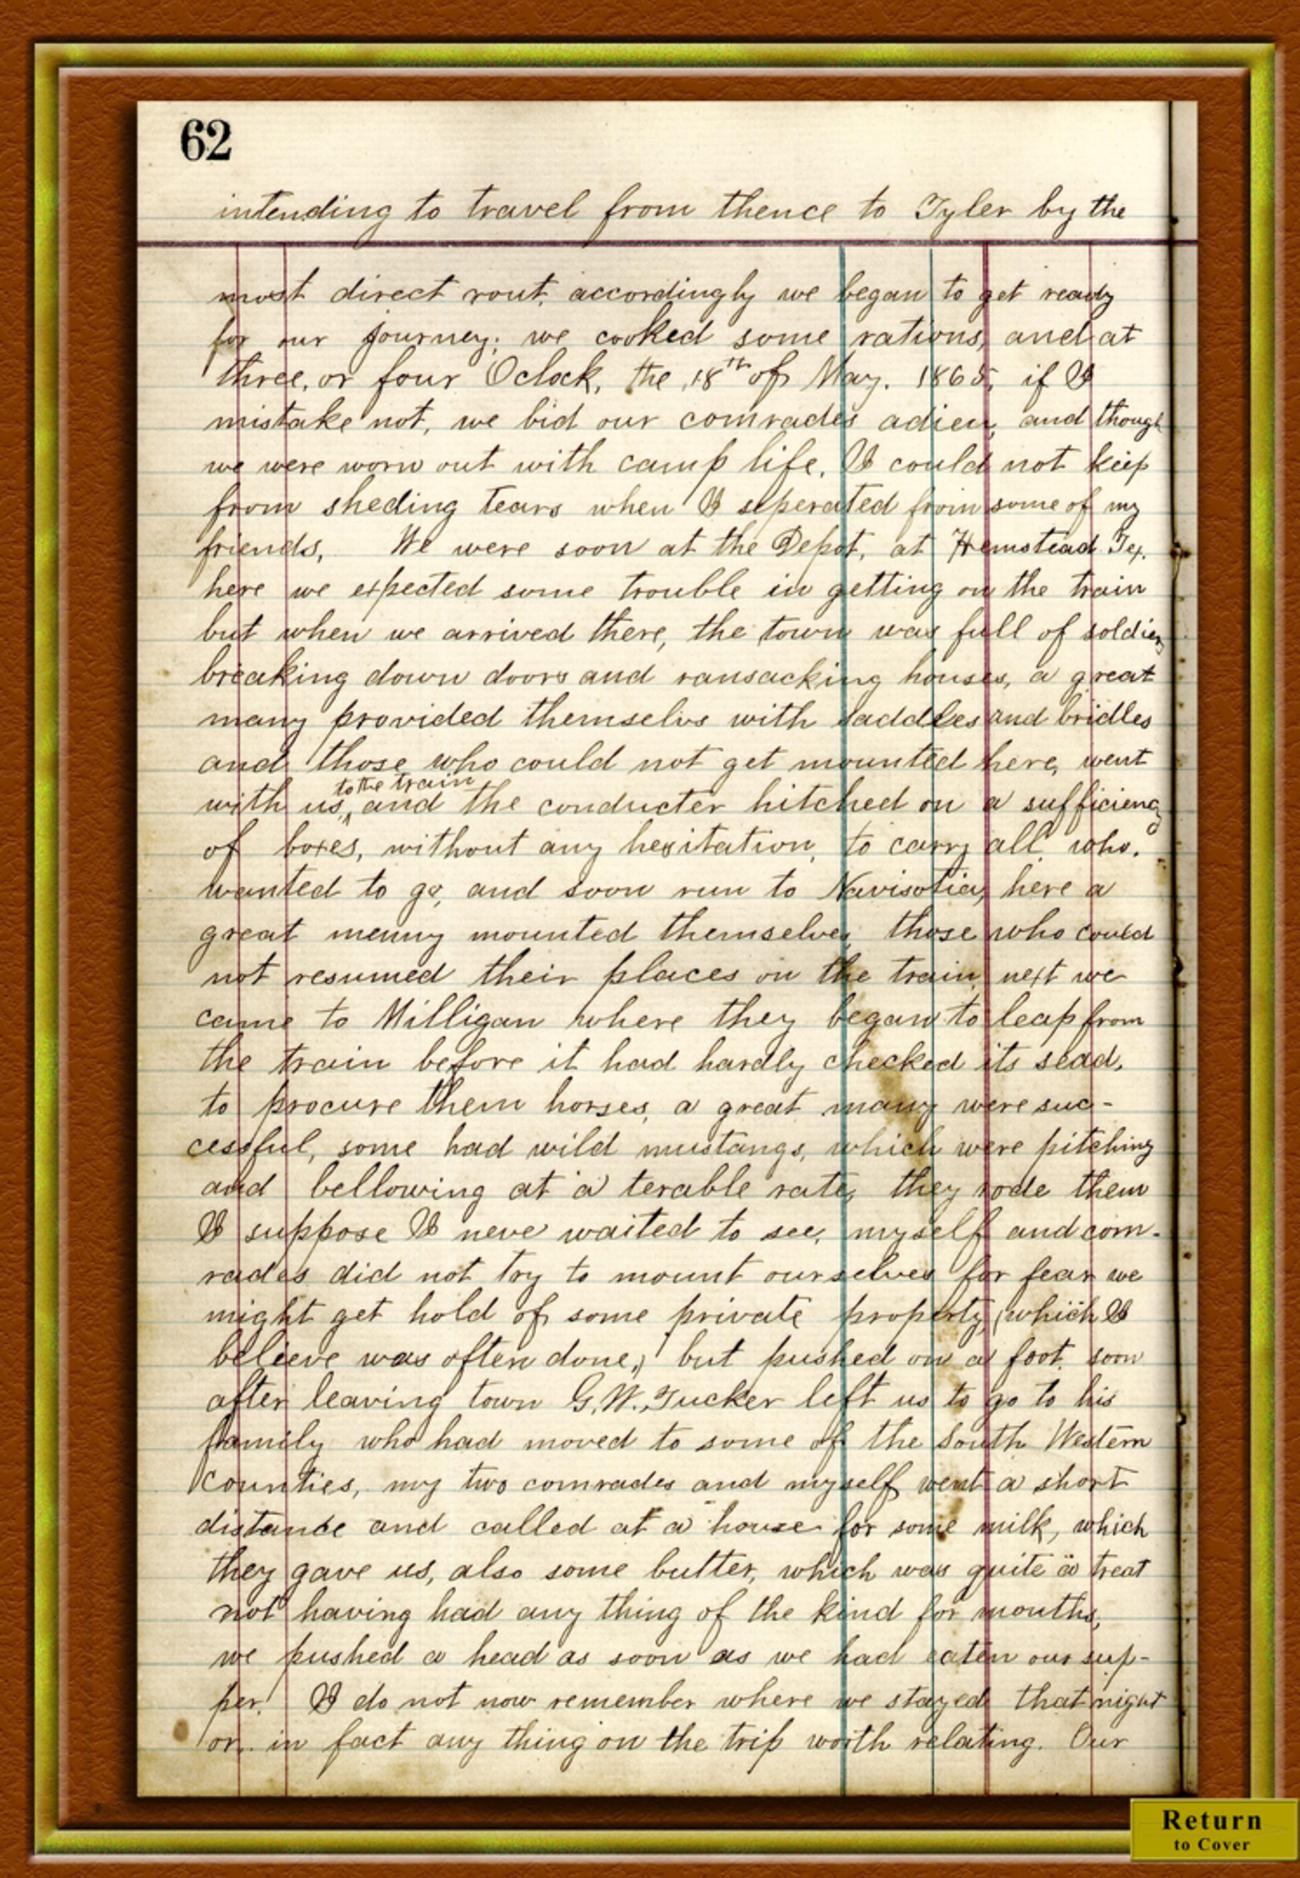 62
intending to travel from thence to Tyler by the
most direct rout, accordingly we began to get ready
for our journey; we cooked some rations, and at
three, or four Oclock, the 18th of May. 1865, if I
mistake not, we bid our comrades adieu, and though
we were worn out with camp life, I could not keep
from sheding tears when I seperated from some of my
friends, We were soon at the Depot, at Hemstead Tex.
here we expected some trouble in getting on the train
but when we arrived there, the town was full of soldiers
breaking down doors and ransacking houses, a great
many provided themselvs with saddles and bridles
and those who could not get mounted here, went
with us, to the train and the conducter hitched on a sufficiency
of boxes, without any hesitation, to carry all who,
wanted to go, and soon run to Navisotia, here a
great menny mounted themselves those who could
not resumed their places on the train, next we
came to Milligan where they began to leap from
the train before it had hardly checked its sead,
to procure them horses, a great many were suc-
cessful, some had wild mustangs, which were pitching
and bellowing at a terable rate, they rode them
I suppose I neve waited to see, myself and com-
rades did not try to mount ourselves for fear we
might get hold of some private property, (which I
believe was often done,) but pushed on a foot, soon
after leaving town G.W. Tucker left us to go to his
family who had moved to some of the South Western
counties, my two comrades and myself went a short
distance and called at a house for some milk, which
they gave us, also some butter, which was quite a treat
not having had any thing of the kind for mouths,
we pushed a head as soon as we had eaten our sup-
per. I do not now remember where we stayed that night
or in fact any thing on the trip worth relating. Our
Return
to Cover